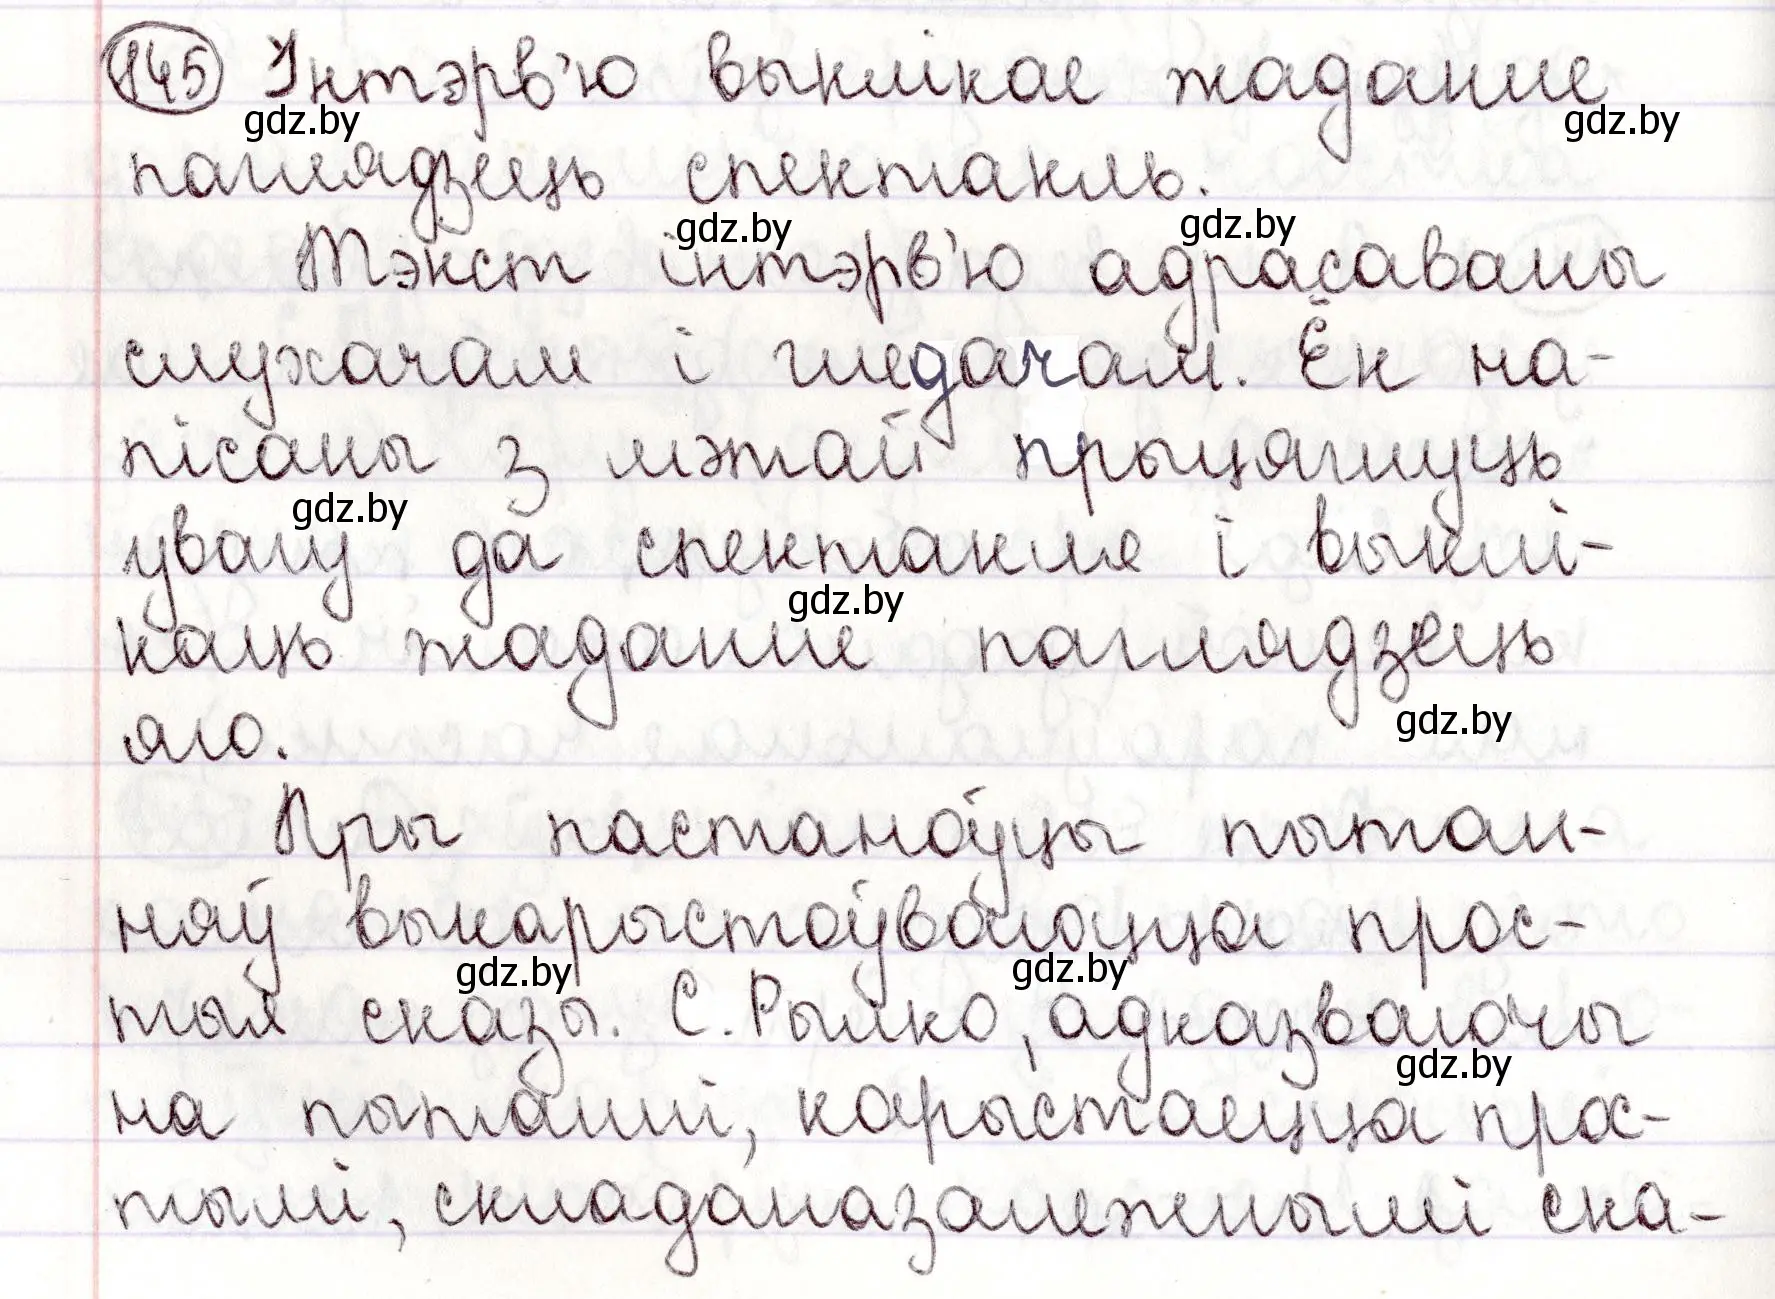 145 Інтэрв'ю выклікае жаданне
gdz.by gdz.by
паглядзець спектакль.
gdz.by gdz.by
Тэкст інтэрв'ю адрасаваны
слухачам і гледачам. Ён на-
пісаны з мэтай прыцягнуць
gdz.by
увагу да спектакля і выклі-
gdz.by
каць жаданне паглядзець
gdz.by
яго.
Пры пастаноўцы пытан-
няў выкарыстоўваюцца прос-
gdz.by gdz.by
тыя сказы. С. Рылко, адказваючы
gdz.by
на пытанні, карыстаецца прос-
тымі, складаназалежнымі ска-